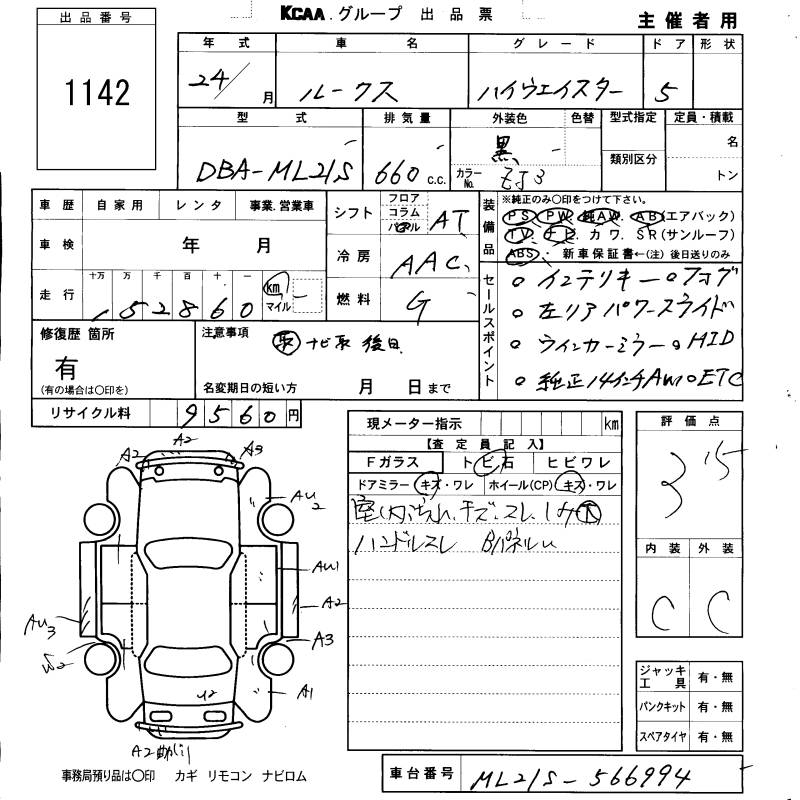 KCAA.グループ 出品票
主催者用
出品番号
1142
年式 車名 グレード ドア 形状
24/ 月 ルークス ハイウェイスター 5
型式 排気量 外装色 色替 型式指定 定員・積載
DBA-ML21S 660 c.c. 黒 カラーNo. ZJ3 類別区分 名
トン
車歴 自家用 レンタ 事業.営業車
車検 年 月
走行 十万 万 千 百 十 一
152860 km マイル
シフト フロア コラム パネル AT
冷房 AAC
燃料 G
装備品
※純正のみ○印をつけて下さい。
PS PW 純AW. AB(エアバック)
TV. ナビ. カワ. SR(サンルーフ)
ABS・ 新車保証書←(注) 後日送りのみ
セールスポイント
○ インテリキー ○フォグ
○ 左リアパワースライド
○ ウィンカーミラー ○HID
○ 純正14インチAW ○ETC
修復歴 箇所
有
(有の場合は○印を)
注意事項
取 ナビ取 後日
名変期日の短い方 月 日まで
リサイクル料 9560円
現メーター指示 km
【査定員記入】
Fガラス トビ石 ヒビワレ
ドアミラー キズ・ワレ ホイール(CP) キズ・ワレ
室内汚れ、キズ・スレ、シミ大
ハンドルスレ BパネルU
評価点
3.5
内装 外装
C C
ジャッキ工具 有・無
パンクキット 有・無
スペアタイヤ 有・無
A2
A2 A3
AU2
AU1
A2
AU3
A3
W2
U2
A1
A2
事務局預り品は○印 カギ リモコン ナビロム
車台番号 ML21S-566994